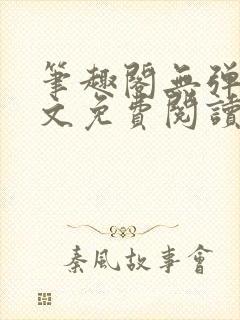 筆趣閣無彈
文免費閱讀
秦風故事會